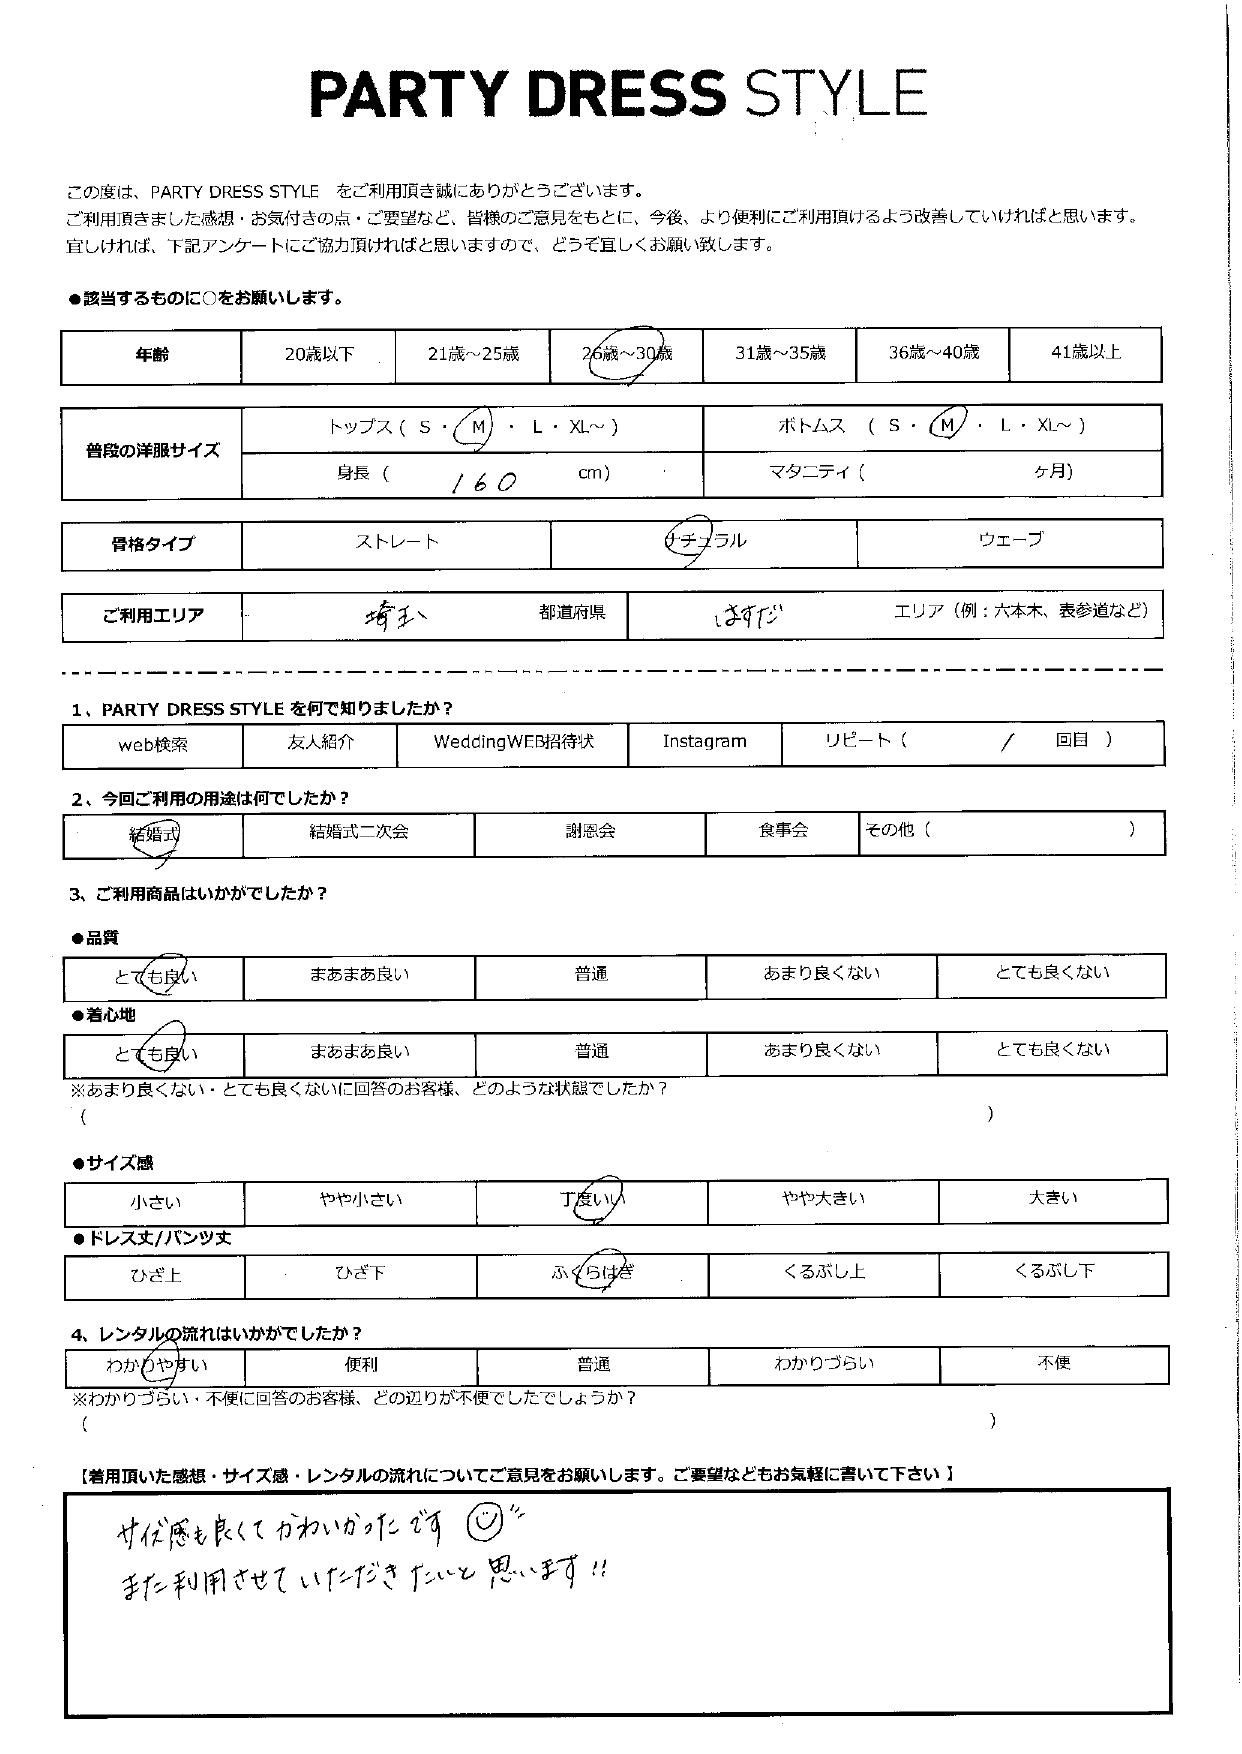 PARTY DRESS STYLE
この度は、PARTY DRESS STYLE をご利用頂き誠にありがとうございます。
ご利用頂きました感想・お気付きの点・ご要望など、皆様のご意見をもとに、今後、より便利にご利用頂けるよう改善していければと思います。
宜しければ、下記アンケートにご協力頂ければと思いますので、どうぞ宜しくお願い致します。
●該当するものに○をお願いします。
年齢 20歳以下 21歳～25歳 26歳～30歳 31歳～35歳 36歳～40歳 41歳以上
普段の洋服サイズ トップス ( S ・ M ・ L ・ XL～ ) ボトムス ( S ・ M ・ L ・ XL～ )
身長 ( 160 cm) マタニティ ( ヶ月)
骨格タイプ ストレート ナチュラル ウェーブ
ご利用エリア 埼玉 都道府県 はすだ エリア（例：六本木、表参道など）
1、PARTY DRESS STYLE を何で知りましたか？
web検索 友人紹介 WeddingWEB招待状 Instagram リピート ( / 回目 )
2、今回ご利用の用途は何でしたか？
結婚式 結婚式二次会 謝恩会 食事会 その他 ( )
3、ご利用商品はいかがでしたか？
●品質
とても良い まあまあ良い 普通 あまり良くない とても良くない
●着心地
とても良い まあまあ良い 普通 あまり良くない とても良くない
※あまり良くない・とても良くないに回答のお客様、どのような状態でしたか？
( )
●サイズ感
小さい やや小さい 丁度いい やや大きい 大きい
●ドレス丈/パンツ丈
ひざ上 ひざ下 ふくらはぎ くるぶし上 くるぶし下
4、レンタルの流れはいかがでしたか？
わかりやすい 便利 普通 わかりづらい 不便
※わかりづらい・不便に回答のお客様、どの辺りが不便でしたでしょうか？
( )
【着用頂いた感想・サイズ感・レンタルの流れについてご意見をお願いします。ご要望などもお気軽に書いて下さい 】
サイズ感も良くてかわいかったです
また利用させていただきたいと思います!!